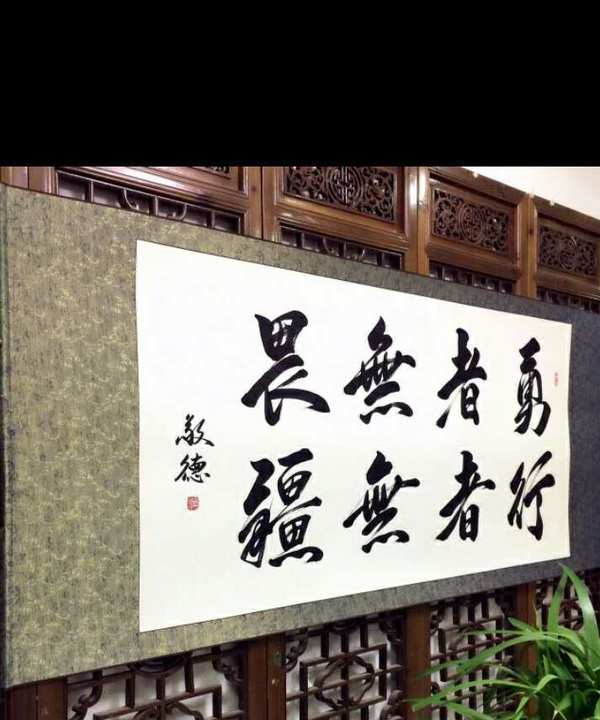 勇者無畏
行者無疆
敬德